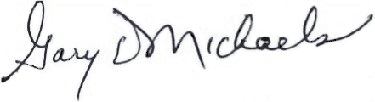 Gary D Michaels